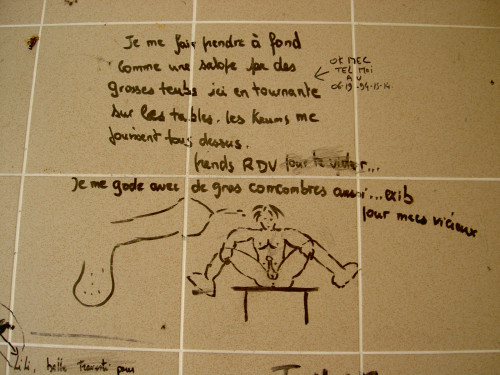 Je me fais prendre à fond
comme une salope par des
grosses teubs ici en tournante
sur les tables. les Keums me
jouissent tous dessus.
prends RDV pour te vider...
Je me gode avec de gros concombres aussi...exib
pour mecs vicieux
OK MEC
TEL MOI
AU
Lili, belle pour